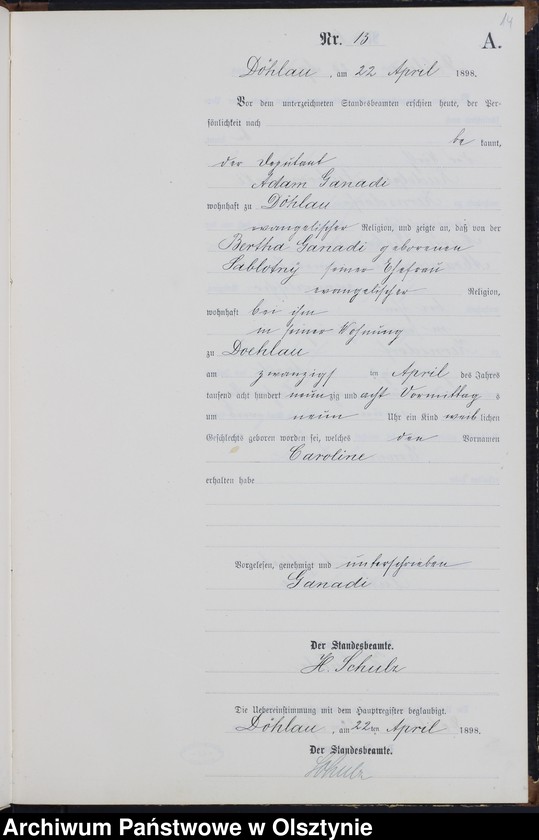 14
Nr. 13
A.
Döhlau, am 22 April 1898.
Vor dem unterzeichneten Standesbeamten erschien heute, der Per-
sönlichkeit nach
be kannt,
der Deputant
Adam Ganadi
wohnhaft zu Döhlau
evangelischer Religion, und zeigte an, daß von der
Bertha Ganadi geborenen
Sablotny seiner Ehefrau
evangelischer Religion,
wohnhaft bei ihm
in seiner Wohnung
zu Doehlau
am zwanzigst ten April des Jahres
tausend acht hundert neun zig und acht Vormittag s
um neun Uhr ein Kind weib lichen
Geschlechts geboren worden sei, welches den Vornamen
Caroline
erhalten habe
Vorgelesen, genehmigt und unterschrieben
Ganadi
Der Standesbeamte.
H. Schulz
Die Uebereinstimmung mit dem Hauptregister beglaubigt.
Döhlau, am 22 ten April 1898.
Der Standesbeamte.
Schulz
Archiwum Państwowe w Olsztynie